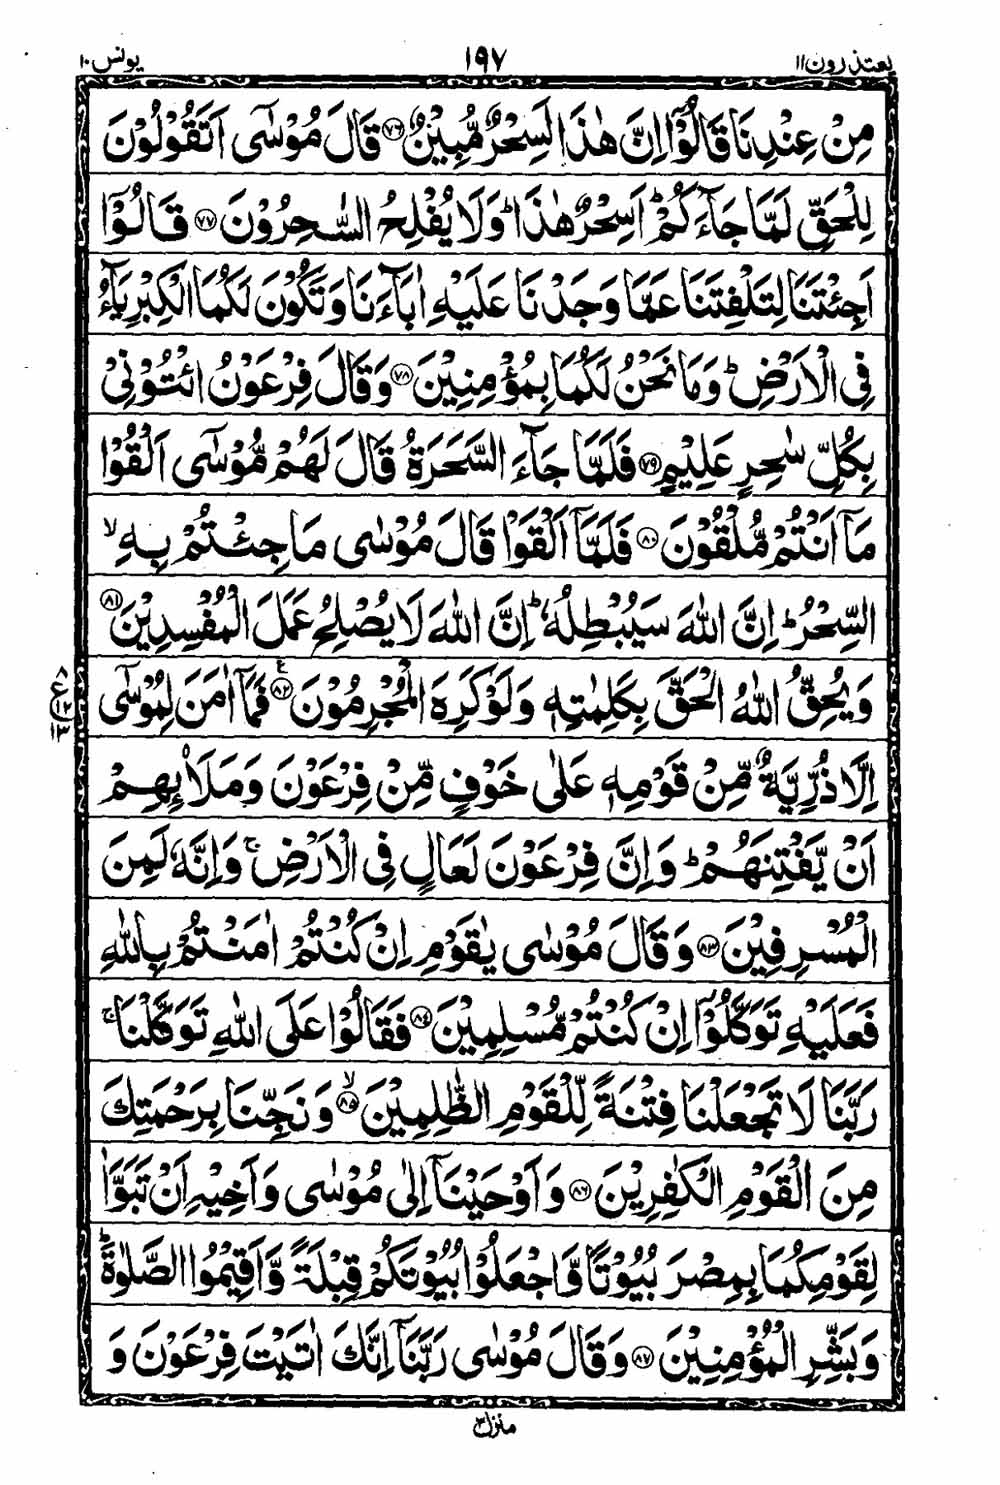 یعتذرون ۱۱
۱۹۷
یونس ۱۰
مِنۡ عِنۡدِنَا قَالُوۡۤا اِنَّ هٰذَا لَسِحۡرٌ مُّبِيۡنٌ ﴿۷۶﴾ قَالَ مُوۡسٰٓى اَتَقُوۡلُوۡنَ
لِلۡحَقِّ لَمَّا جَآءَكُمۡ ؕ اَسِحۡرٌ هٰذَا ؕ وَلَا يُفۡلِحُ السّٰحِرُوۡنَ ﴿۷۷﴾ قَالُوۡۤا
اَجِئۡتَنَا لِتَلۡفِتَنَا عَمَّا وَجَدۡنَا عَلَيۡهِ اٰبَآءَنَا وَتَكُوۡنَ لَكُمَا الۡكِبۡرِيَآءُ
فِى الۡاَرۡضِ ؕ وَمَا نَحۡنُ لَكُمَا بِمُؤۡمِنِيۡنَ ﴿۷۸﴾ وَقَالَ فِرۡعَوۡنُ ائۡتُوۡنِىۡ
بِكُلِّ سٰحِرٍ عَلِيۡمٍ ﴿۷۹﴾ فَلَمَّا جَآءَ السَّحَرَةُ قَالَ لَهُمۡ مُّوۡسٰٓى اَلۡقُوۡا
مَاۤ اَنۡتُمۡ مُّلۡقُوۡنَ ﴿۸۰﴾ فَلَمَّاۤ اَلۡقَوۡا قَالَ مُوۡسٰى مَا جِئۡتُمۡ بِهِ ۙ
السِّحۡرُ ؕ اِنَّ اللّٰهَ سَيُبۡطِلُهٗ ؕ اِنَّ اللّٰهَ لَا يُصۡلِحُ عَمَلَ الۡمُفۡسِدِيۡنَ ﴿۸۱﴾
وَيُحِقُّ اللّٰهُ الۡحَقَّ بِكَلِمٰتِهٖ وَلَوۡ كَرِهَ الۡمُجۡرِمُوۡنَ ﴿۸۲﴾ ع فَمَاۤ اٰمَنَ لِمُوۡسٰٓى
۸ ع ۱۲ ۱۳
اِلَّا ذُرِّيَّةٌ مِّنۡ قَوۡمِهٖ عَلٰى خَوۡفٍ مِّنۡ فِرۡعَوۡنَ وَمَلَا۟ئِهِمۡ
اَنۡ يَّفۡتِنَهُمۡ ؕ وَاِنَّ فِرۡعَوۡنَ لَعَالٍ فِى الۡاَرۡضِ ۚ وَاِنَّهٗ لَمِنَ
الۡمُسۡرِفِيۡنَ ﴿۸۳﴾ وَقَالَ مُوۡسٰى يٰقَوۡمِ اِنۡ كُنۡتُمۡ اٰمَنۡتُمۡ بِاللّٰهِ
فَعَلَيۡهِ تَوَكَّلُوۡۤا اِنۡ كُنۡتُمۡ مُّسۡلِمِيۡنَ ﴿۸۴﴾ فَقَالُوۡا عَلَى اللّٰهِ تَوَكَّلۡنَا ۚ
رَبَّنَا لَا تَجۡعَلۡنَا فِتۡنَةً لِّلۡقَوۡمِ الظّٰلِمِيۡنَ ﴿۸۵﴾ ۙ وَنَجِّنَا بِرَحۡمَتِكَ
مِنَ الۡقَوۡمِ الۡكٰفِرِيۡنَ ﴿۸۶﴾ وَاَوۡحَيۡنَاۤ اِلٰى مُوۡسٰى وَاَخِيۡهِ اَنۡ تَبَوَّاٰ
لِقَوۡمِكُمَا بِمِصۡرَ بُيُوۡتًا وَّاجۡعَلُوۡا بُيُوۡتَكُمۡ قِبۡلَةً وَّاَقِيۡمُوا الصَّلٰوةَ ؕ
وَبَشِّرِ الۡمُؤۡمِنِيۡنَ ﴿۸۷﴾ وَقَالَ مُوۡسٰى رَبَّنَاۤ اِنَّكَ اٰتَيۡتَ فِرۡعَوۡنَ وَ
منزل ۳